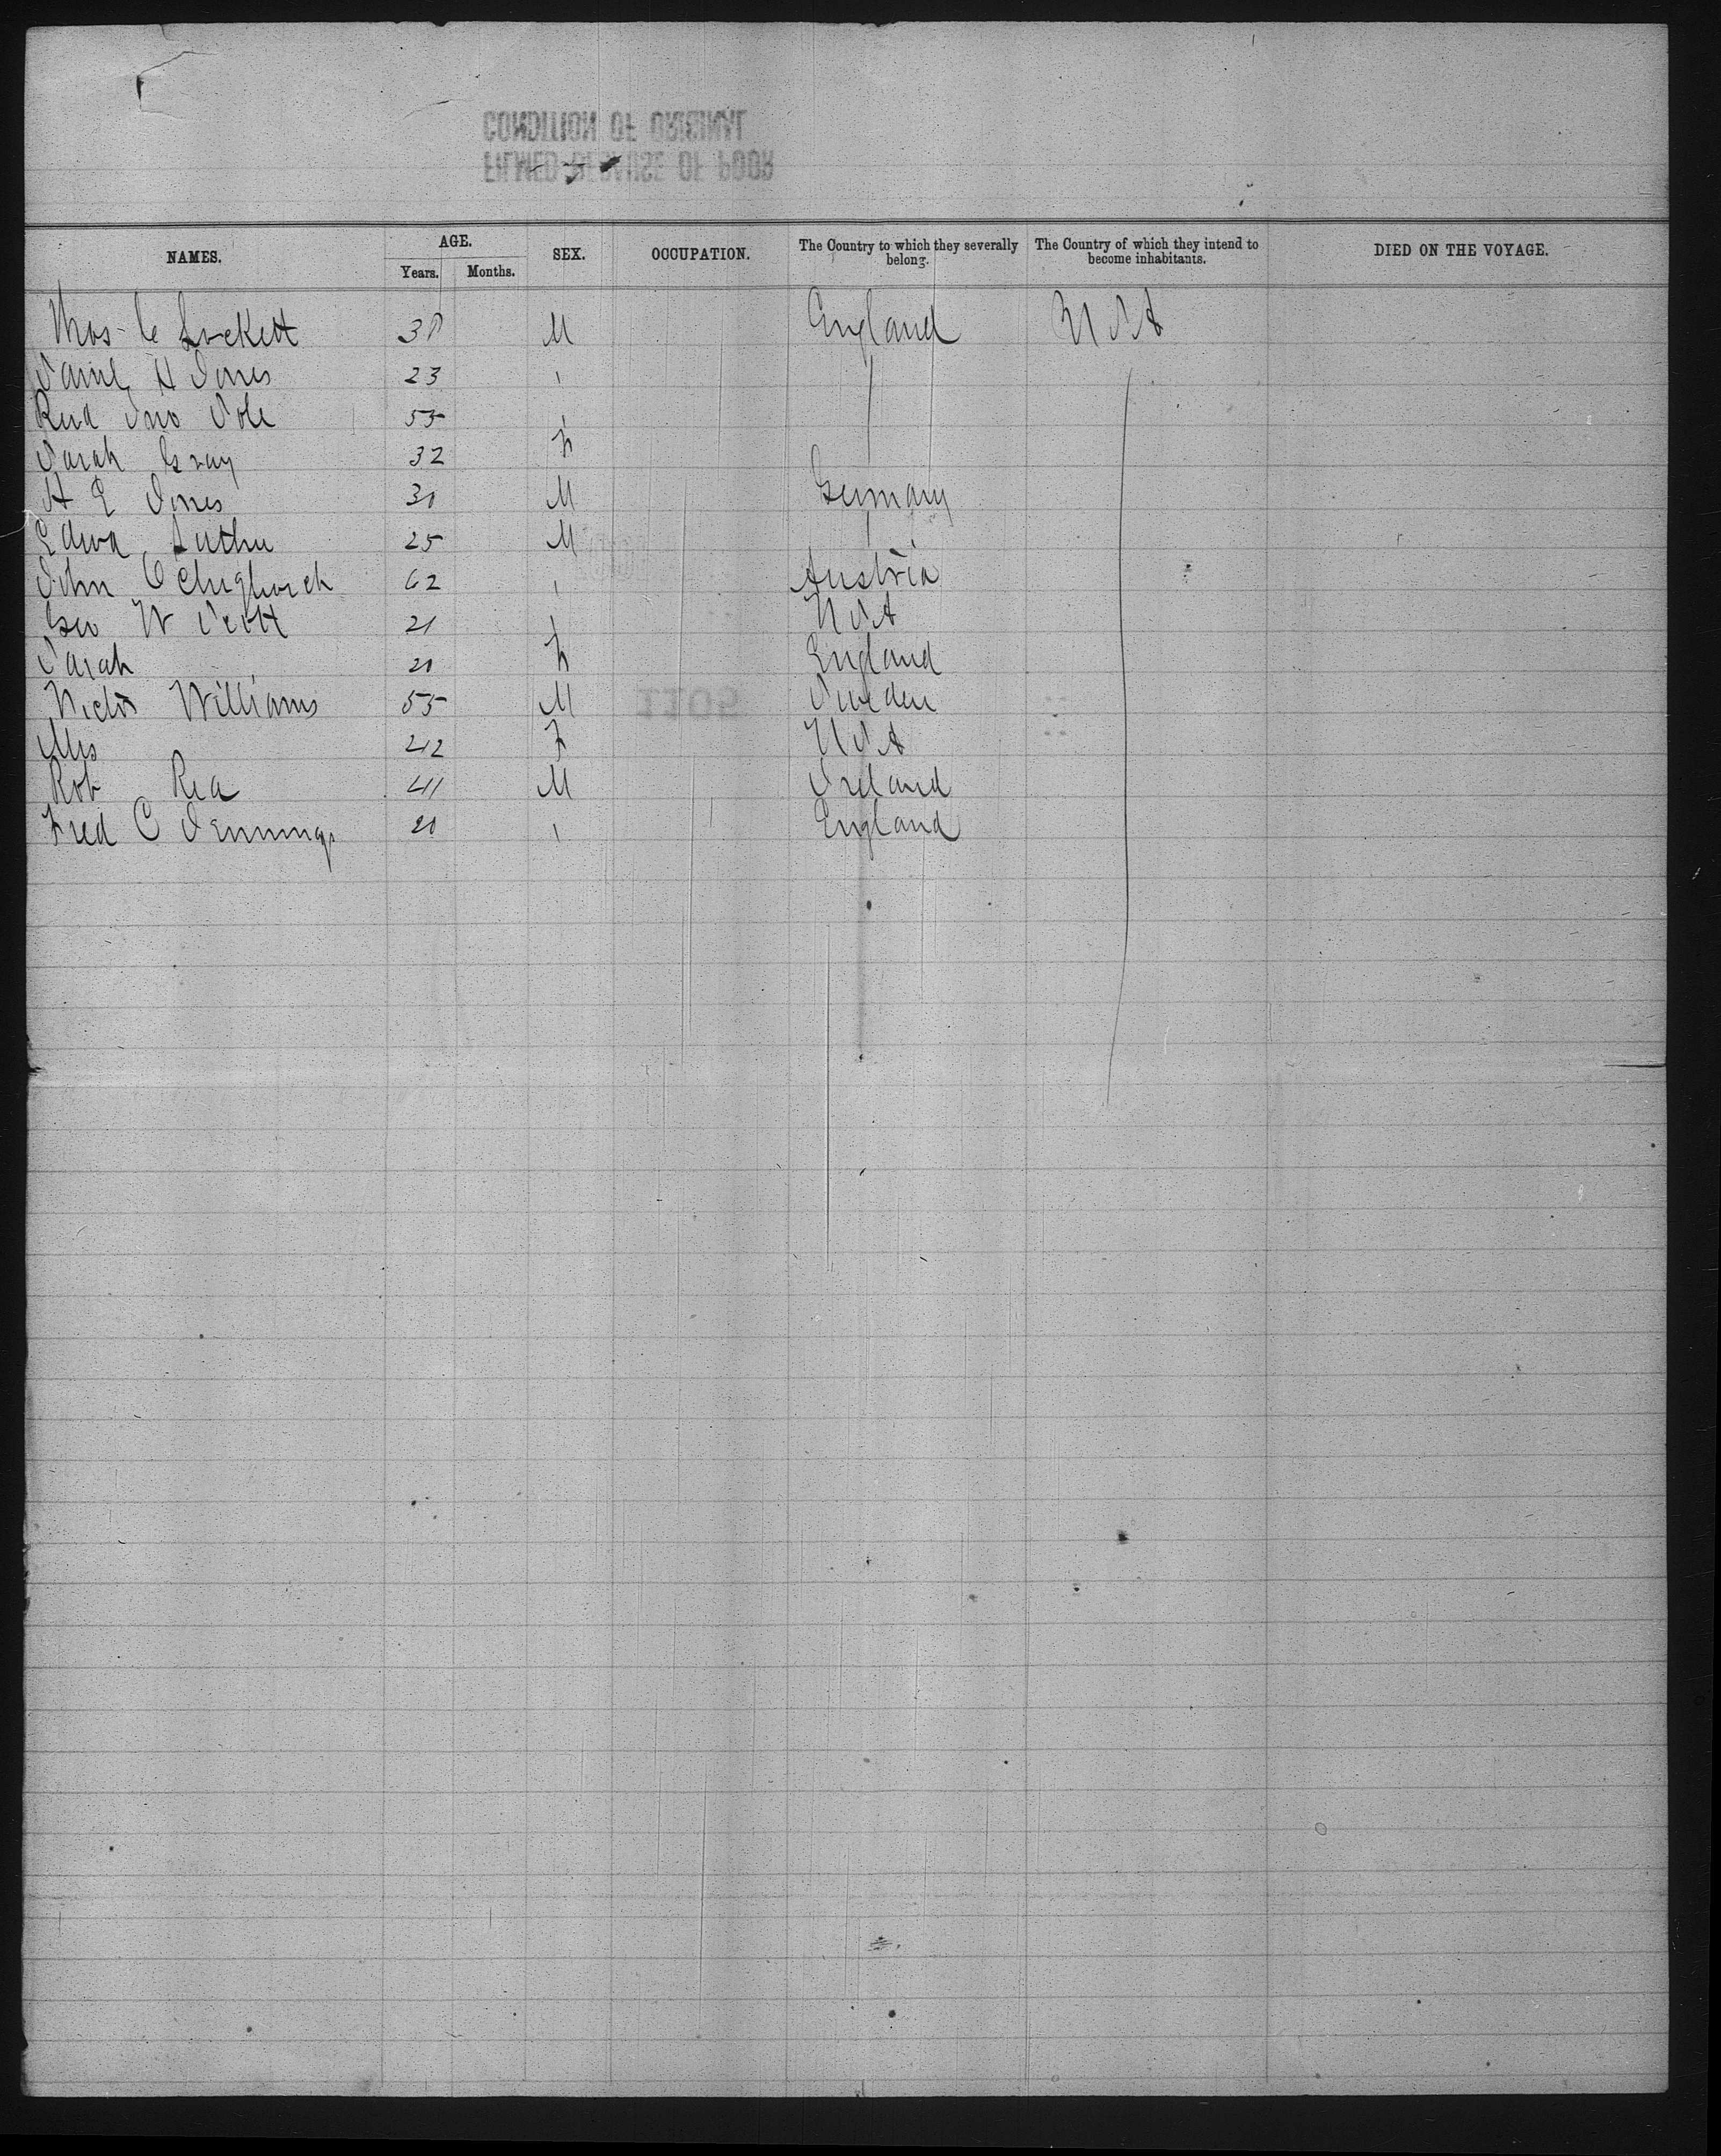 CONDITION OF ORIGINAL
FILMED BECAUSE OF POOR
NAMES. AGE. SEX. OCCUPATION. The Country to which they severally belong. The Country of which they intend to become inhabitants. DIED ON THE VOYAGE.
Years. Months.
Thos C Lockett 30 M England USA
H Jones 23
Revd Jno Sole 55
Sarah Gray 32 F
H E Jones 30 M Germany
Edwd 25 M
John C 62 Austria
Geo W Scott 21 USA
Sarah 20 F England
Victor Williams 55 M Sweden
Mrs 42 F USA
Rob Rea 41 M Ireland
Fred C Jennings 20 England
1105